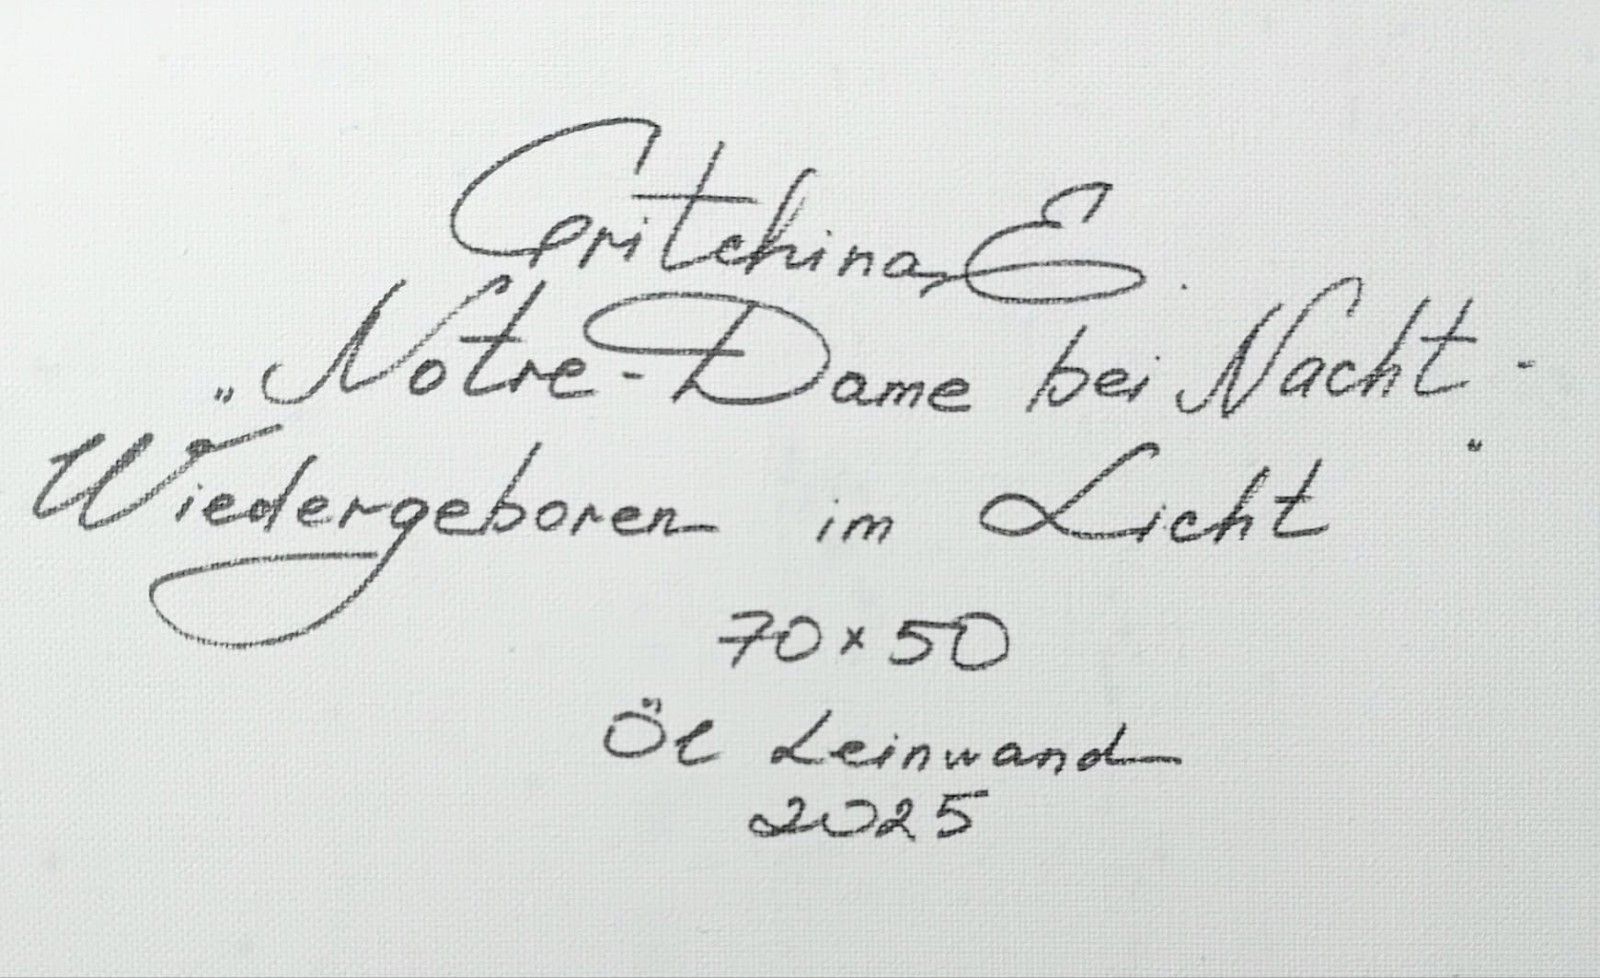 Gritchina, E.
„Notre-Dame bei Nacht -
Wiedergeboren im Licht“
70×50
Öl Leinwand
2025